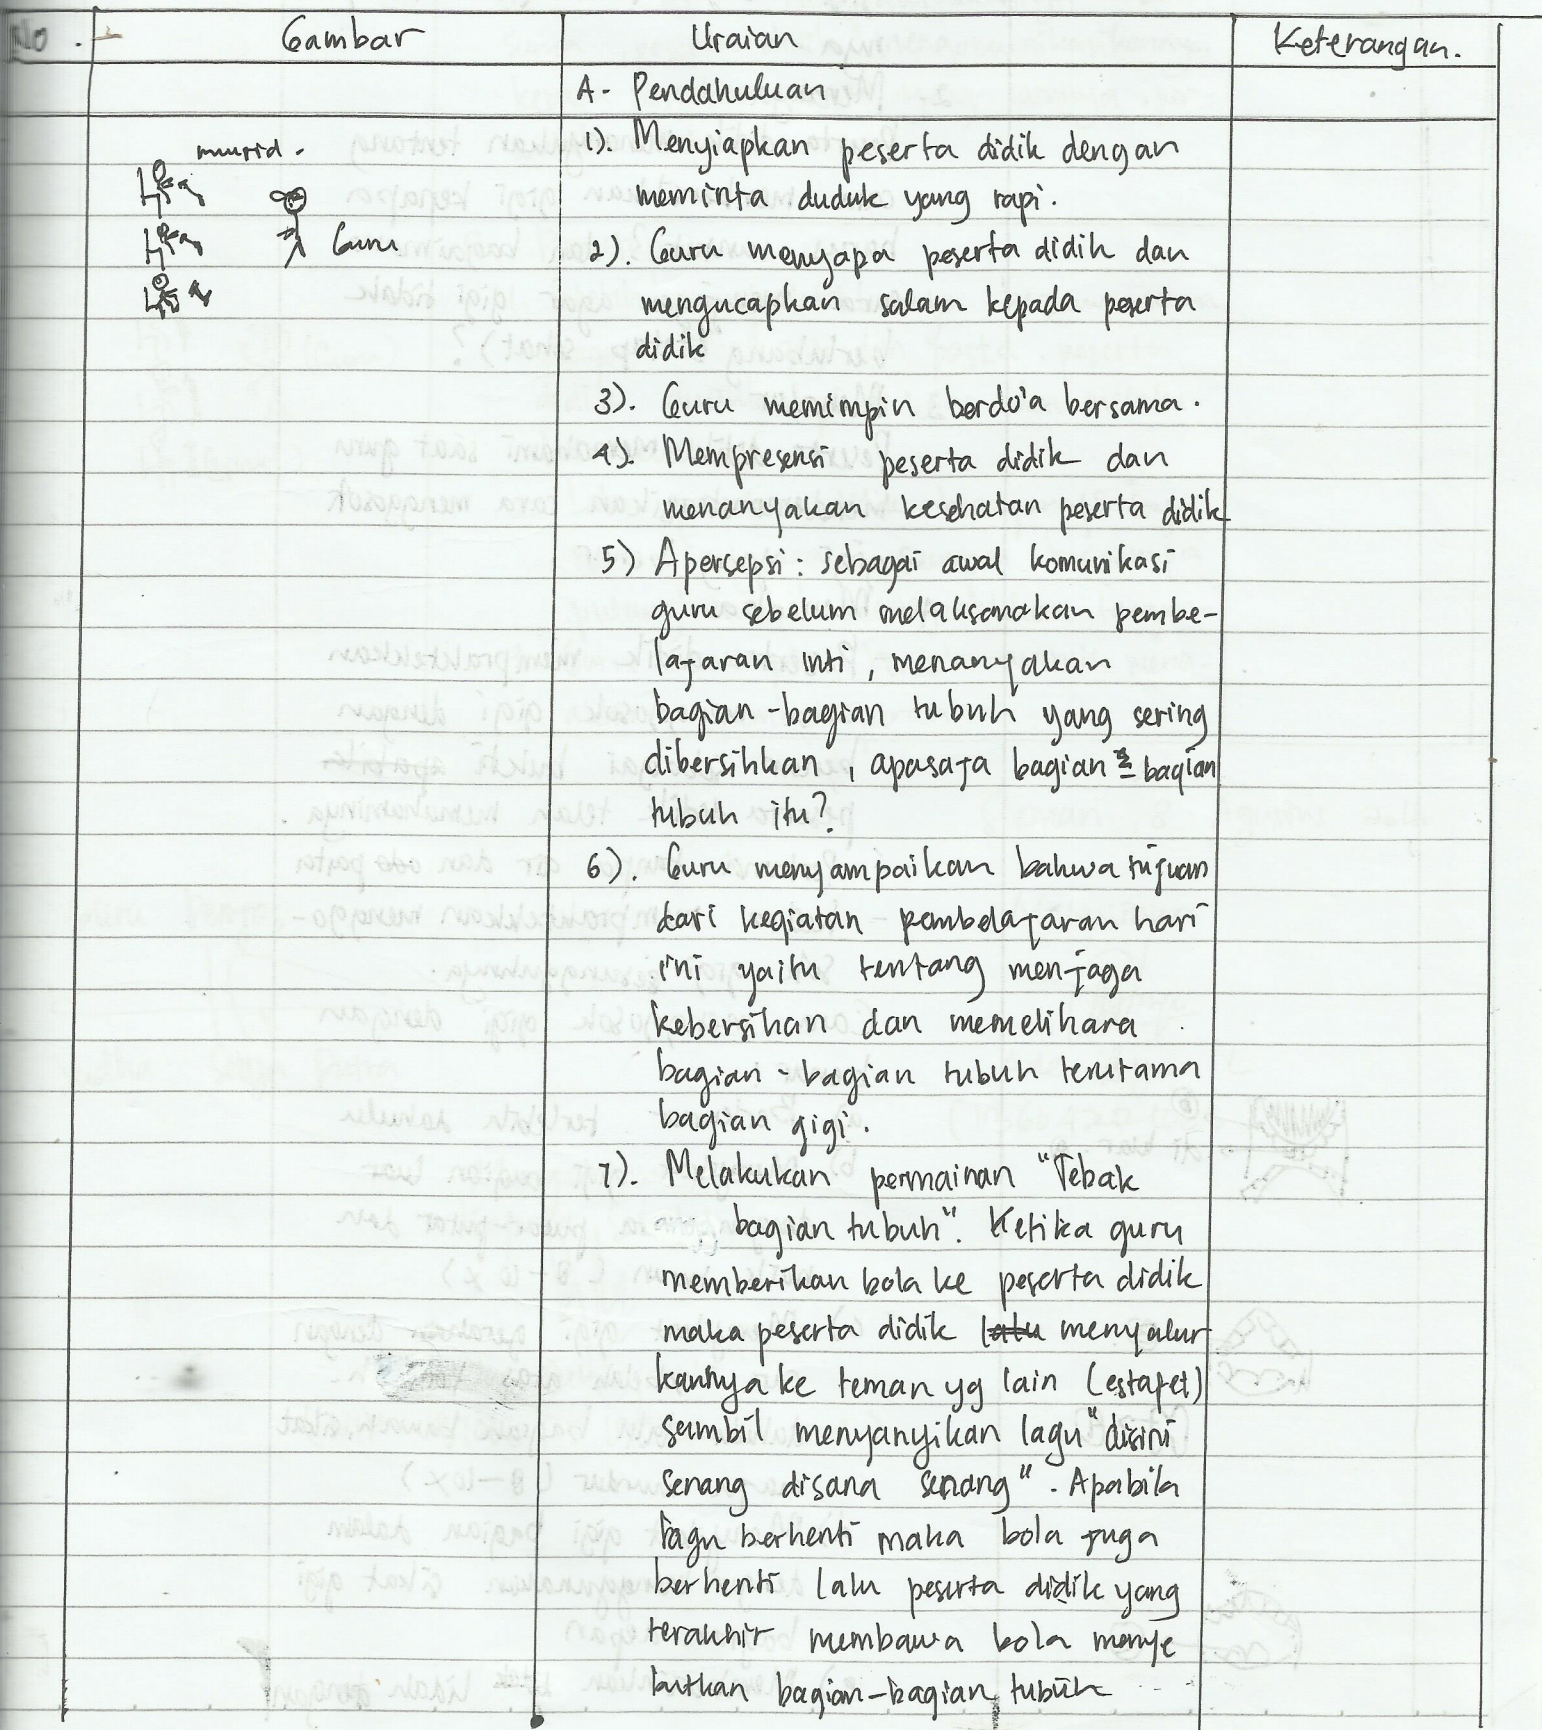 No. Gambar Uraian Keterangan.
A. Pendahuluan
murid.
Guru
1). Menyiapkan peserta didik dengan
meminta duduk yang rapi.
2). Guru menyapa peserta didik dan
mengucapkan salam kepada peserta
didik
3). Guru memimpin berdo'a bersama.
4). Mempresensi peserta didik dan
menanyakan kesehatan peserta didik
5) Apersepsi: sebagai awal komunikasi
guru sebelum melaksanakan pembe-
lajaran inti, menanyakan
bagian-bagian tubuh yang sering
dibersihkan, apasaja bagian - bagian
tubuh itu?
6). Guru menyampaikan bahwa tujuan
dari kegiatan pembelajaran hari
ini yaitu tentang menjaga
kebersihan dan memelihara
bagian - bagian tubuh terutama
bagian gigi.
7). Melakukan permainan "Tebak
bagian tubuh". Ketika guru
memberikan bola ke peserta didik
maka peserta didik lalu menyalur
kannya ke teman yg lain (estafet)
sambil menyanyikan lagu "disini
senang disana senang". Apabila
lagu berhenti maka bola juga
berhenti lalu peserta didik yang
terakhir membawa bola menye
butkan bagian-bagian tubuh